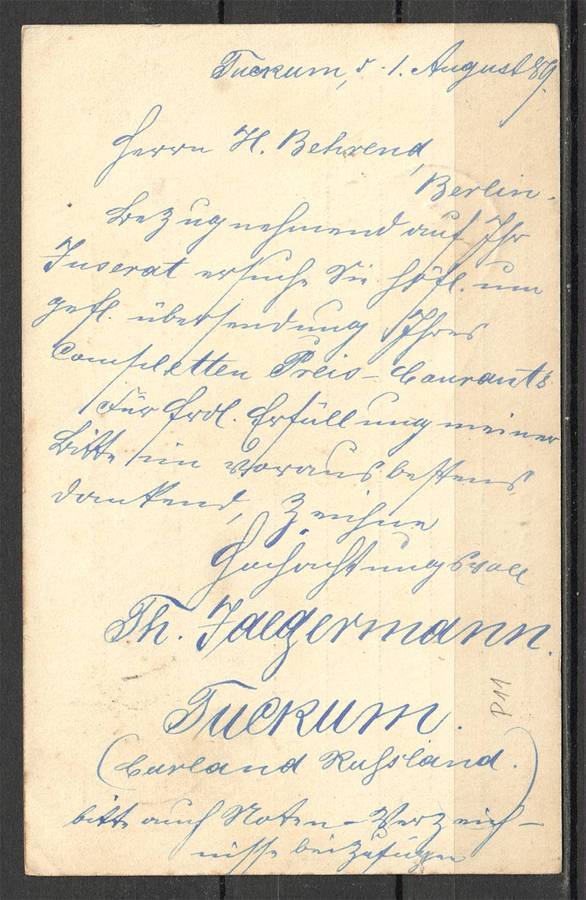 Tuckum, d. 1. August 89.
Herrn H. Behrend,
Berlin.
Bezugnehmend auf Ihr
Inserat ersuche Sie höfl. um
gefl. übersendung Ihres
Completten Preis-Courants
für frdl. Erfüllung meiner
Bitte im voraus bestens
dankend, Zeichne
Hochachtungsvoll
Th. Jaegermann.
Tuckum.
(Curland Russland.)
bitte auch Noten-Verzeich-
nisse beizufügen
P11